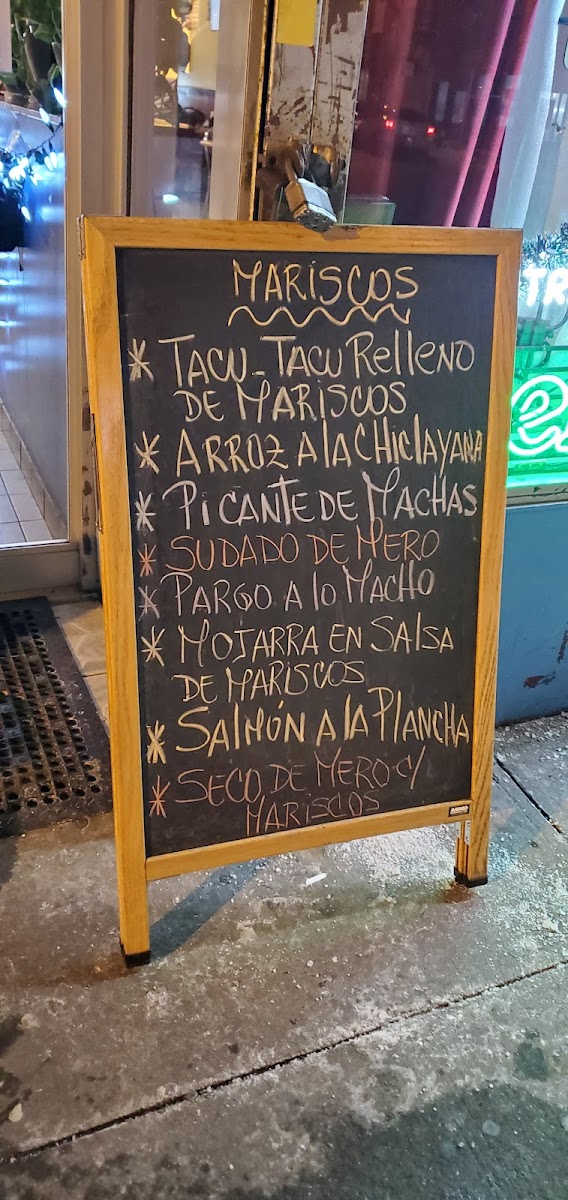 MARISCOS
* TACU-TACU Relleno
DE MARISCOS
* ARROZ A la CHIClAYANA
* PICANTE DE MACHAS
* SUDADO DE MERO
* PARGO A lo MACHO
* MOJARRA EN SAlSA
DE MARISCOS
* SAlMÓN A lA PlANCHA
* SECO DE MERO C/
MARISCOS
TR